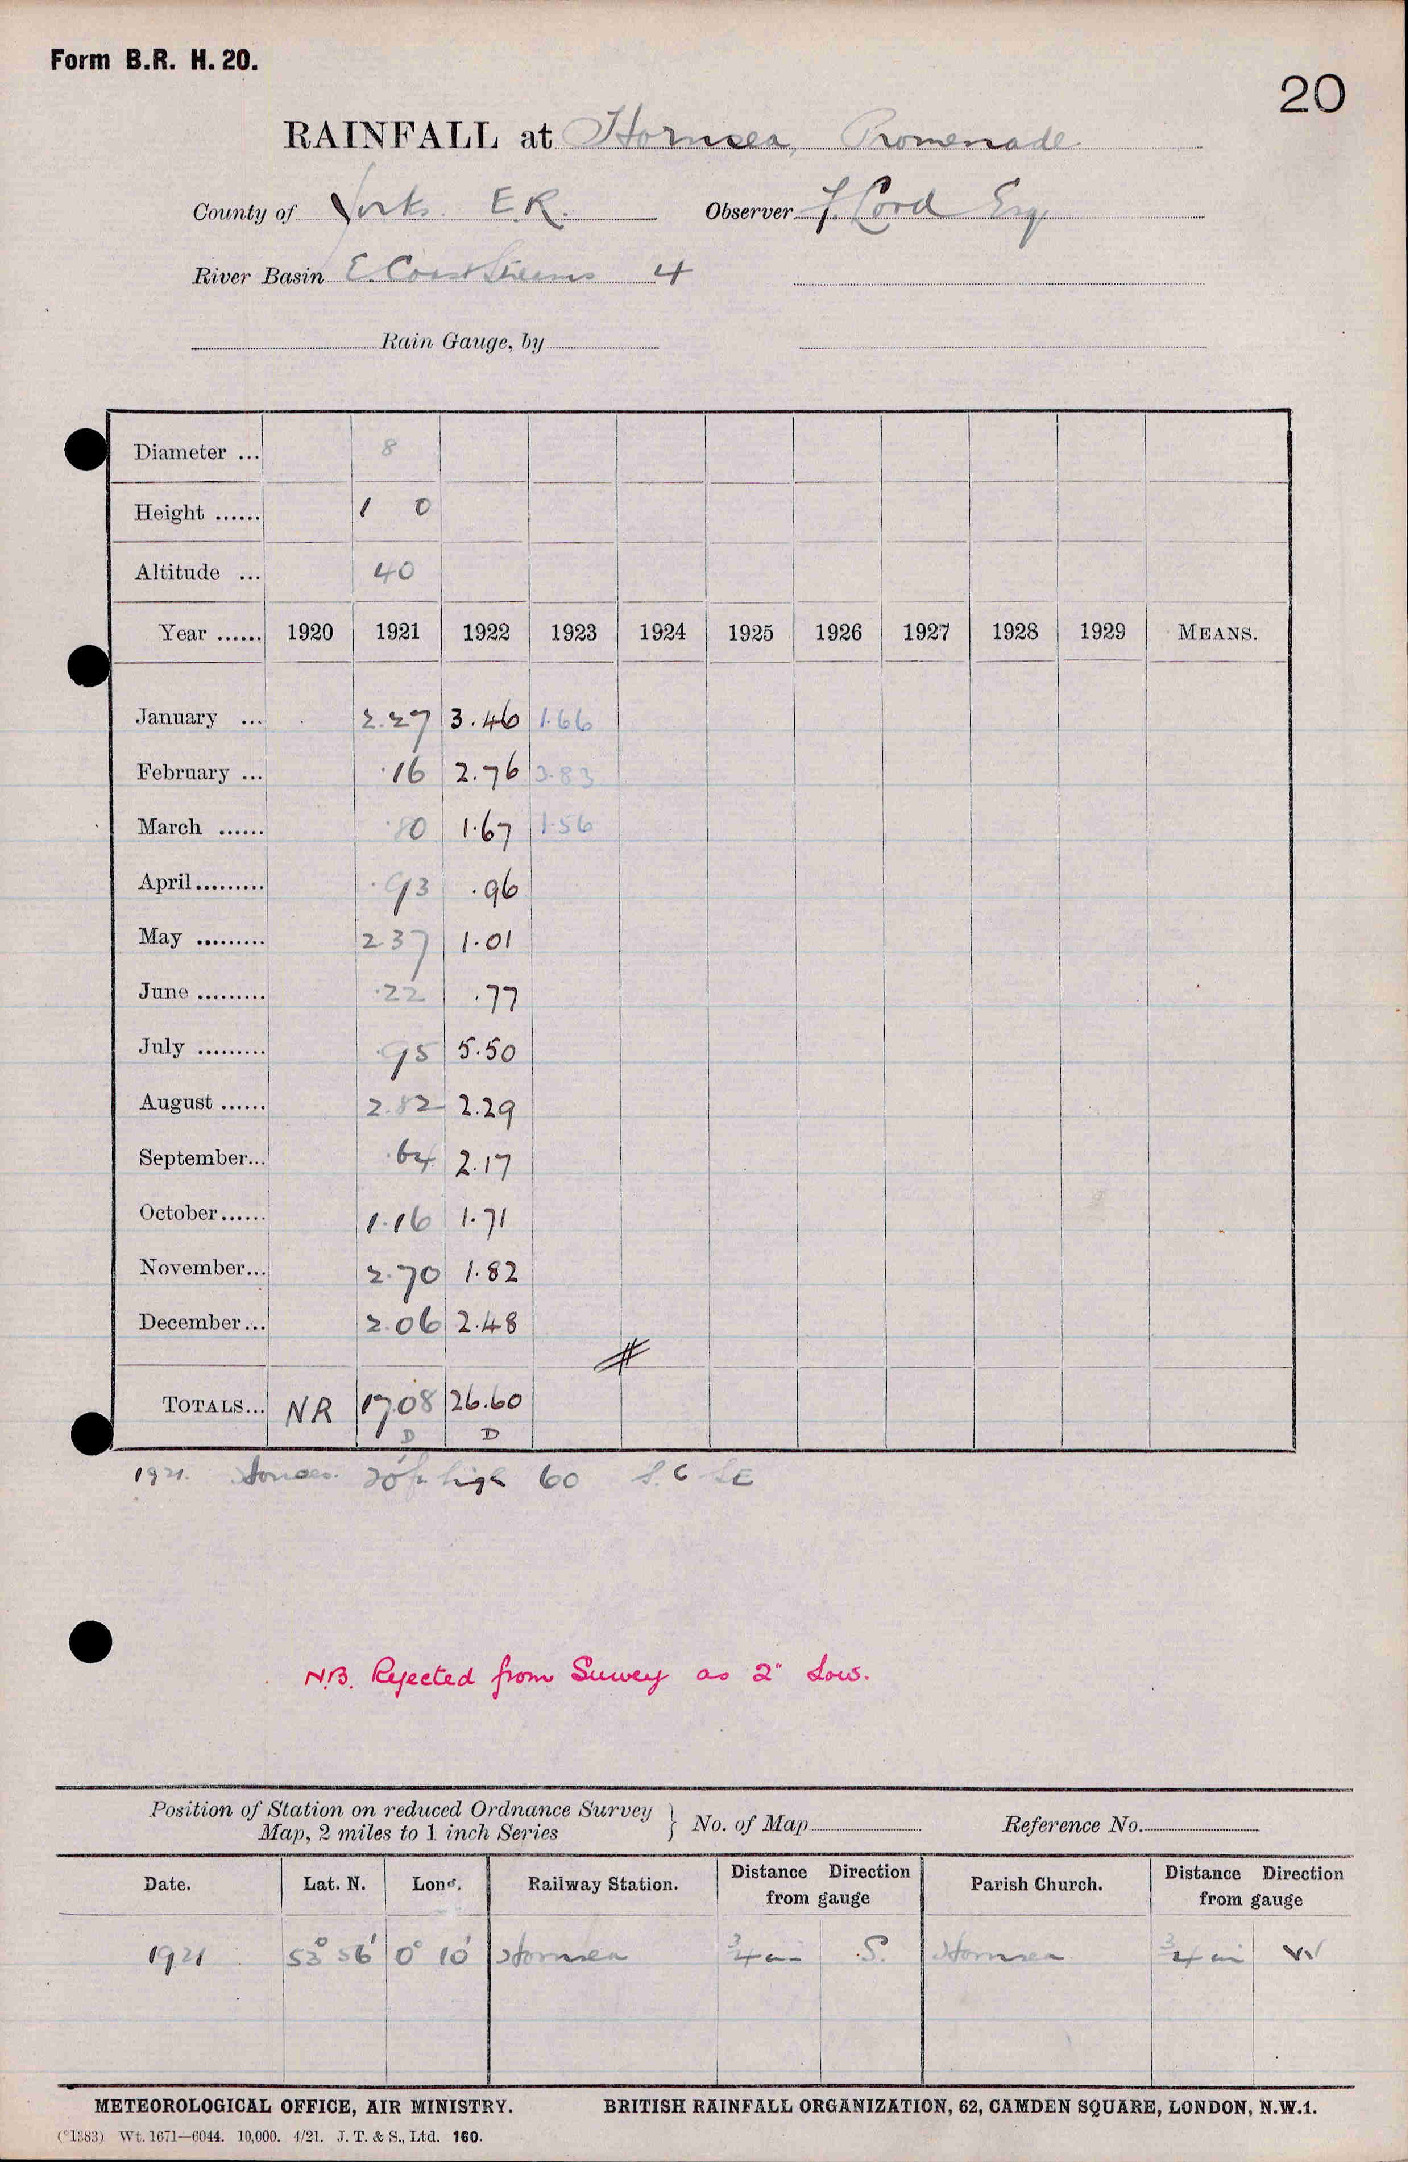 Form B.R. H. 20.
20
RAINFALL at Hornsea, Promenade
County of Yorks. E.R. Observer Esq
River Basin E. Coast Streams 4
Rain Gauge, by
Diameter ... 8
Height ...... 1 0
Altitude ... 40
Year ...... 1920 1921 1922 1923 1924 1925 1926 1927 1928 1929 MEANS.
January ... 2.27 3.46 1.66
February ... .16 2.76 2.83
March ...... .80 1.67 1.56
April ......... .93 .96
May ......... 2.37 1.01
June ......... .22 .77
July ......... .95 5.50
August ...... 2.82 2.29
September... .64 2.17
October...... 1.16 1.71
November... 2.70 1.82
December... 2.06 2.48
TOTALS... NR 17.08 26.60
D D
1921. 20 ft high 60
N.B. Rejected from Survey as 2" low.
Position of Station on reduced Ordnance Survey
Map, 2 miles to 1 inch Series } No. of Map Reference No.
Date. Lat. N. Long. Railway Station. Distance Direction from gauge Parish Church. Distance Direction from gauge
1921 53° 56' 0° 10' Hornsea 3/4 mi S. Hornsea 3/4 mi W
METEOROLOGICAL OFFICE, AIR MINISTRY. BRITISH RAINFALL ORGANIZATION, 62, CAMDEN SQUARE, LONDON, N.W.1.
(*1383) Wt. 1671—6044. 10,000. 4/21. J. T. & S., Ltd. 160.